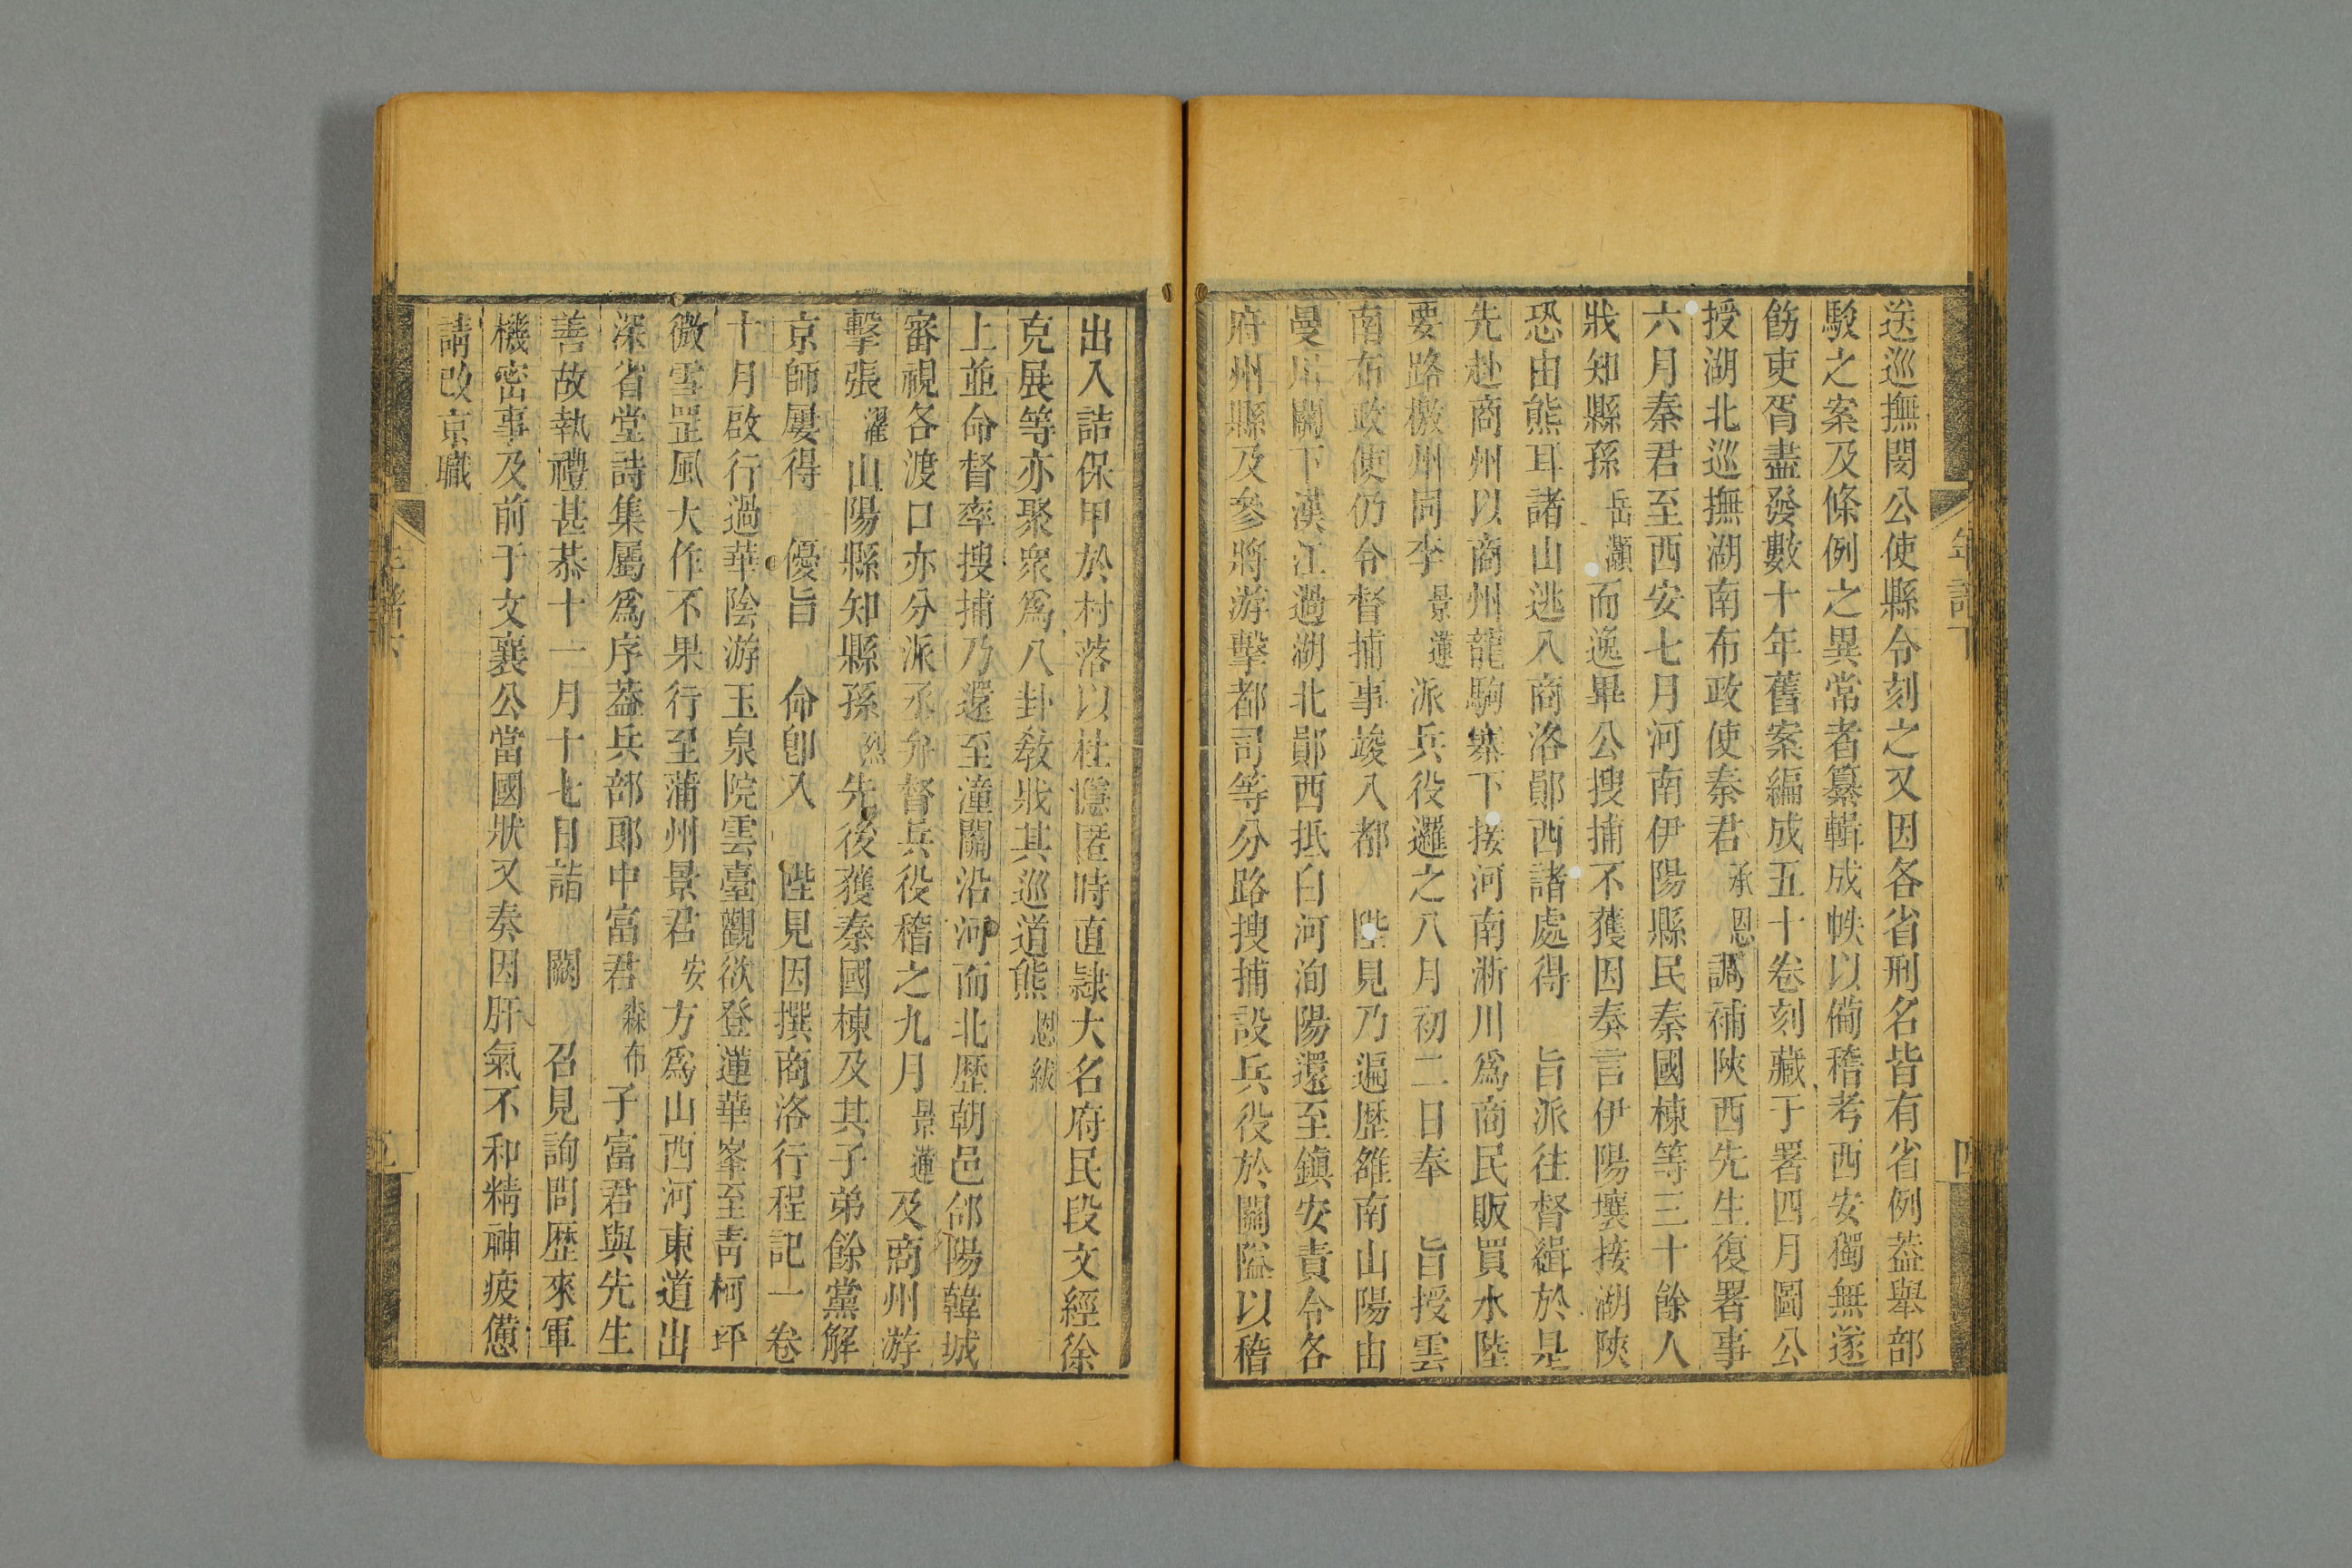 送巡撫閔公使縣令刻之又因各省刑名皆有省例葢舉部
駮之案及條例之異常者纂輯成帙以備稽考西安獨無遂
飭吏胥盡發數十年舊案編成五十卷刻藏于署四月圖公
授湖北巡撫湖南布政使秦君承恩調補陝西先生復署事
六月秦君至西安七月河南伊陽縣民秦國棟等三十餘人
戕知縣孫岳灝而逸畢公搜捕不獲因奏言伊陽壤接湖陝
恐由熊耳諸山逃入商洛鄖西諸處得旨派往督緝於是
先赴商州以商州龍駒寨下接河南淅川爲商民販買水陸
要路檄州同李景蓮派兵役邏之八月初二日奉旨授雲
南布政使仍令督捕事竣入都陛見乃遍歷雒南山陽由
曼川關下漢江過湖北鄖西抵白河洵陽還至鎮安責令各
府州縣及參將游擊都司等分路搜捕設兵役於關隘以稽
年譜下
四
出入詰保甲於村落以杜隱匿時直隸大名府民段文經徐
克展等亦聚衆爲八卦敎戕其巡道熊恩紱
上並命督率搜捕乃還至潼關沿河而北歷朝邑郃陽韓城
審視各渡口亦分派丞弁督兵役稽之九月景蓮及商州游
擊張濯山陽縣知縣孫烈先後獲秦國棟及其子弟餘黨解
京師屢得優旨命卽入陛見因撰商洛行程記一卷
十月啟行過華陰游玉泉院雲臺觀欲登蓮華峯至靑柯坪
微雪罡風大作不果行至蒲州景君安方爲山西河東道出
深省堂詩集屬爲序葢兵部郎中富君森布子富君與先生
善故執禮甚恭十一月十七日詣闕召見詢問歷來軍
機密事及前于文襄公當國狀又奏因肝氣不和精神疲憊
請改京職
年譜下
五